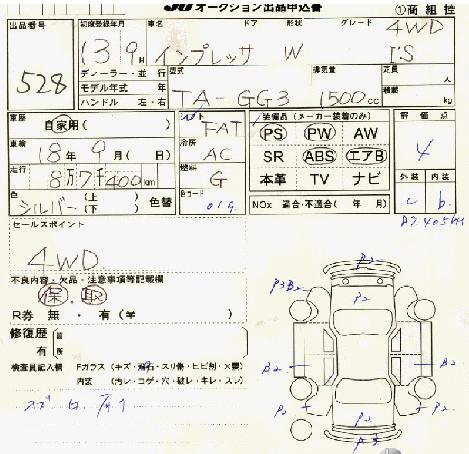 JU オークション出品申込書 ①商組控
出品番号 528
初度登録年月 13 9月
車名 インプレッサ
ドア 形状 W
グレード 4WD I'S
ディーラー・並行
モデル年式 年
ハンドル 左・右
型式 TA-GG3
排気量 1500cc
定員 人
積載 kg
車歴 自家用( )
車検 18年 9月( 日)
走行 8万7千400km
色 シルバー (上 ) (下 ) 色替
シフト FAT
冷房 AC
燃料 G
色コード 01G
装備品(メーカー装着のみ)
PS PW AW
SR ABS エアB
本革 TV ナビ
NOx 適合・不適合( 年 月)
評価点 4
外装 内装
c b
セールスポイント
4WD
不良内容・欠品・注意事項等記載欄
保. 取
R券 無・有(¥ )
修復歴 無 有
検査員記入欄 Fガラス(キズ・飛石・スリ傷・ヒビ割・X要)
内装 (汚レ・コゲ・穴・破レ・キレ・スレ)
P2
P3 B2
P2
B2 B2
P2 P2
P2